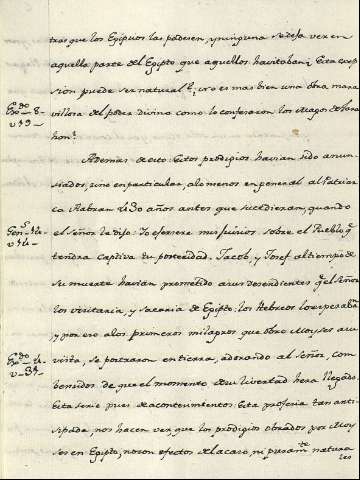 tras que los Egipcios las padesen, y ninguna se deja ver en
aquella parte del Egipto que aquellos havitaban; Esta exep
sion puede ser natural? es mas bien una obra mara
Exodo 8
villosa del poder divino como lo confesaron los Magos de Fara
v 19
hon?
Ademas de esto Estos prodigios havian sido anun
siados, sino en particular, alomenos en general al Patriar
ca Abran 430 años antes que sucedieran, quando
Gen 15
el señor le dijo: Yo efersere mis juicios sobre el Pueblo q
v 14
tendra captiva tu posteridad. Jacob, y Josef al tiempo de
su muerte havian prometido a sus desendientes q el Señor
los visitaria, y sacaria de Egipto: los Hebreos lo esperaban
y por eso a los primeros milagros que obro Moyses a su
Exodo 4
vista, se postraron en tierra, adorando al Señor, com
v 31
benidos de que el momento de su libertad hera llegado
Esta serie pues de acontecimientos: Esta profesia tan anti
sipada, nos hacen ver que los prodigios obrados por Moy
ses en Egipto, no son efectos del acaso, ni puramte natura
les